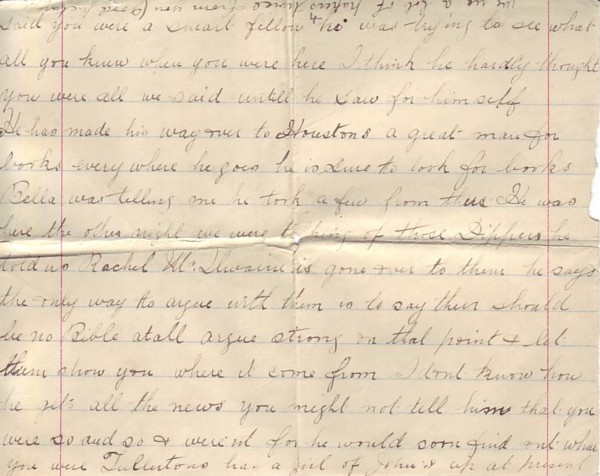 said you were a smart fellow he was trying to see what
all you knew when you were here I think he hardly thought
you were all we said untill he saw for him self
He has made his way over to Houstons a great man for
books every where he goes he is sure to look for books
Bella was telling me he took a few from their He was
here the other night we were talking of those Dippers he
told us Rachel McIlwaine is gone over to them he says
the only way to argue with them is to say their should
be no Bible atall argue strong on that point & let
them show you where it come from I dont know how
he gets all the news you might not tell him that you
were so and so & werent for he would soon find out what
you were Fullertons has a girl of John's up at present